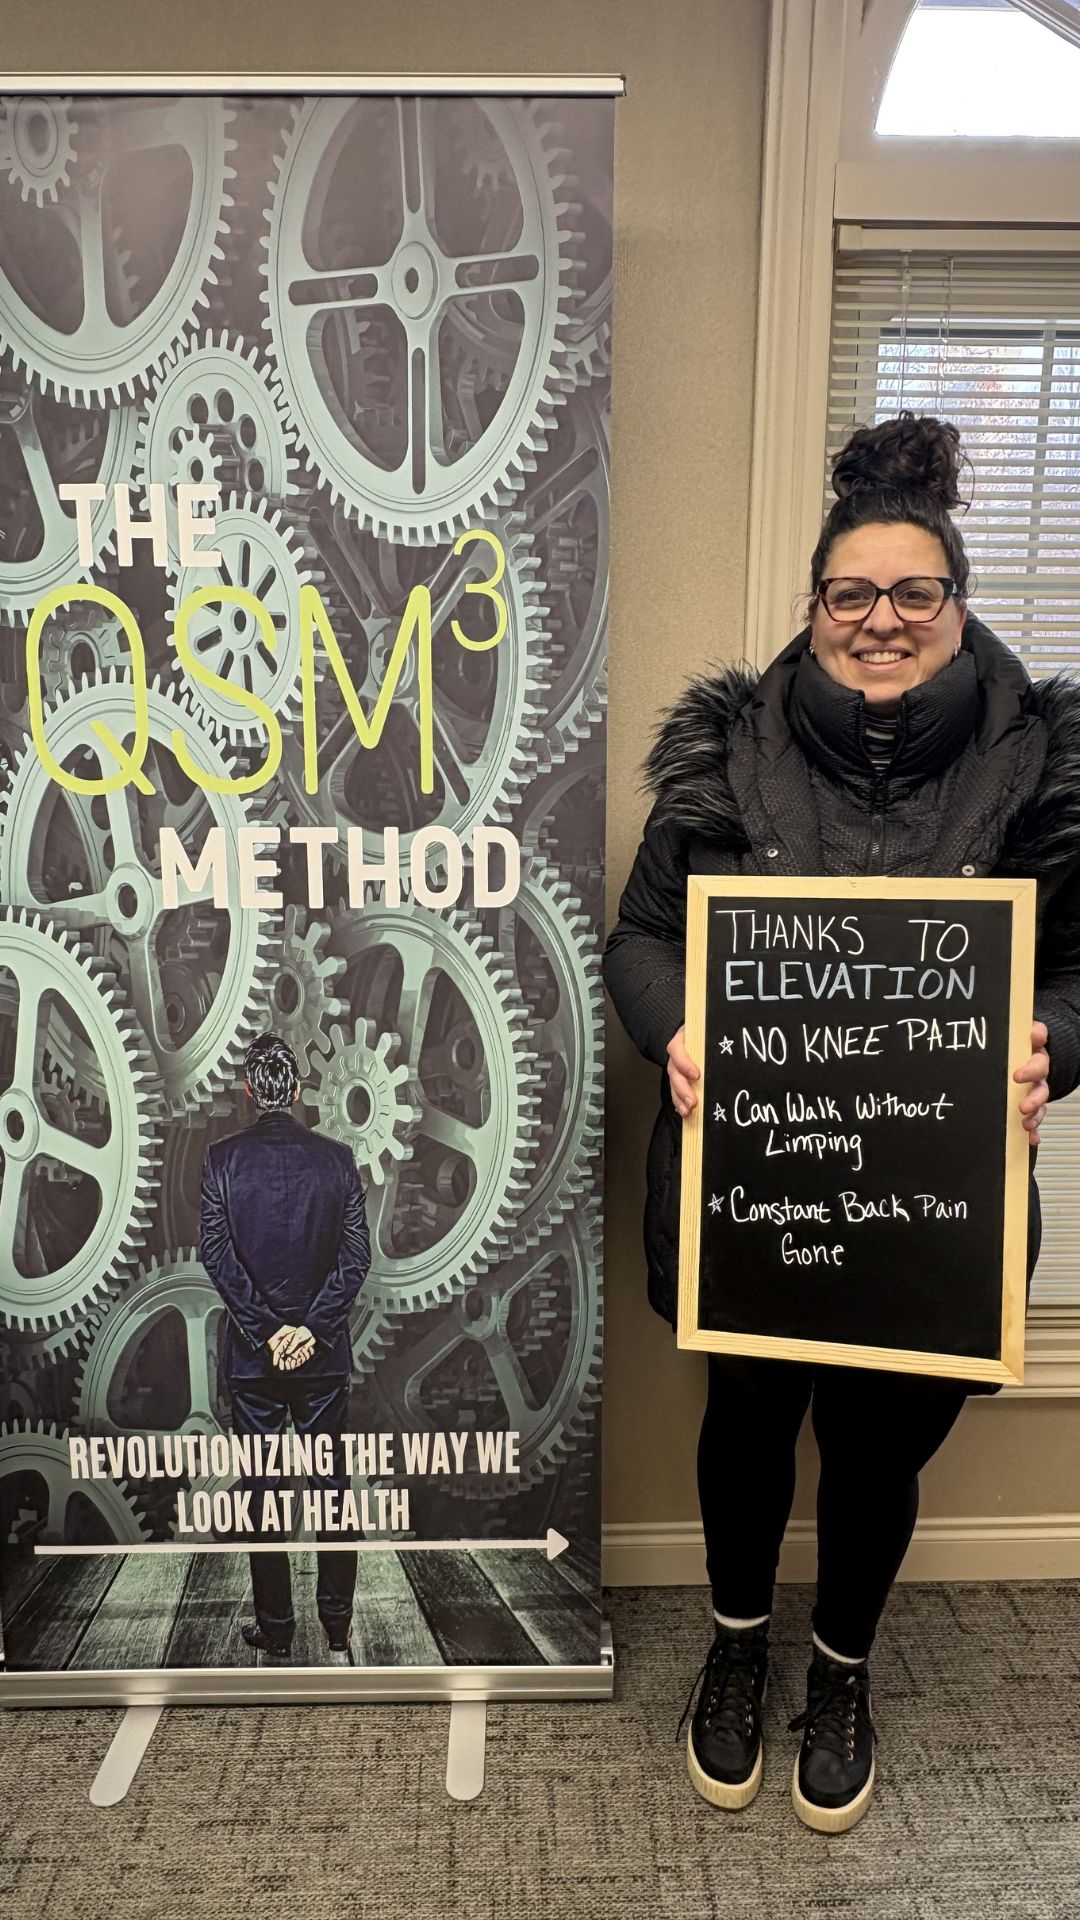 THE
QSM³
METHOD
REVOLUTIONIZING THE WAY WE
LOOK AT HEALTH
THANKS TO
ELEVATION
☆ NO KNEE PAIN
☆ Can Walk Without
Limping
☆ Constant Back Pain
Gone